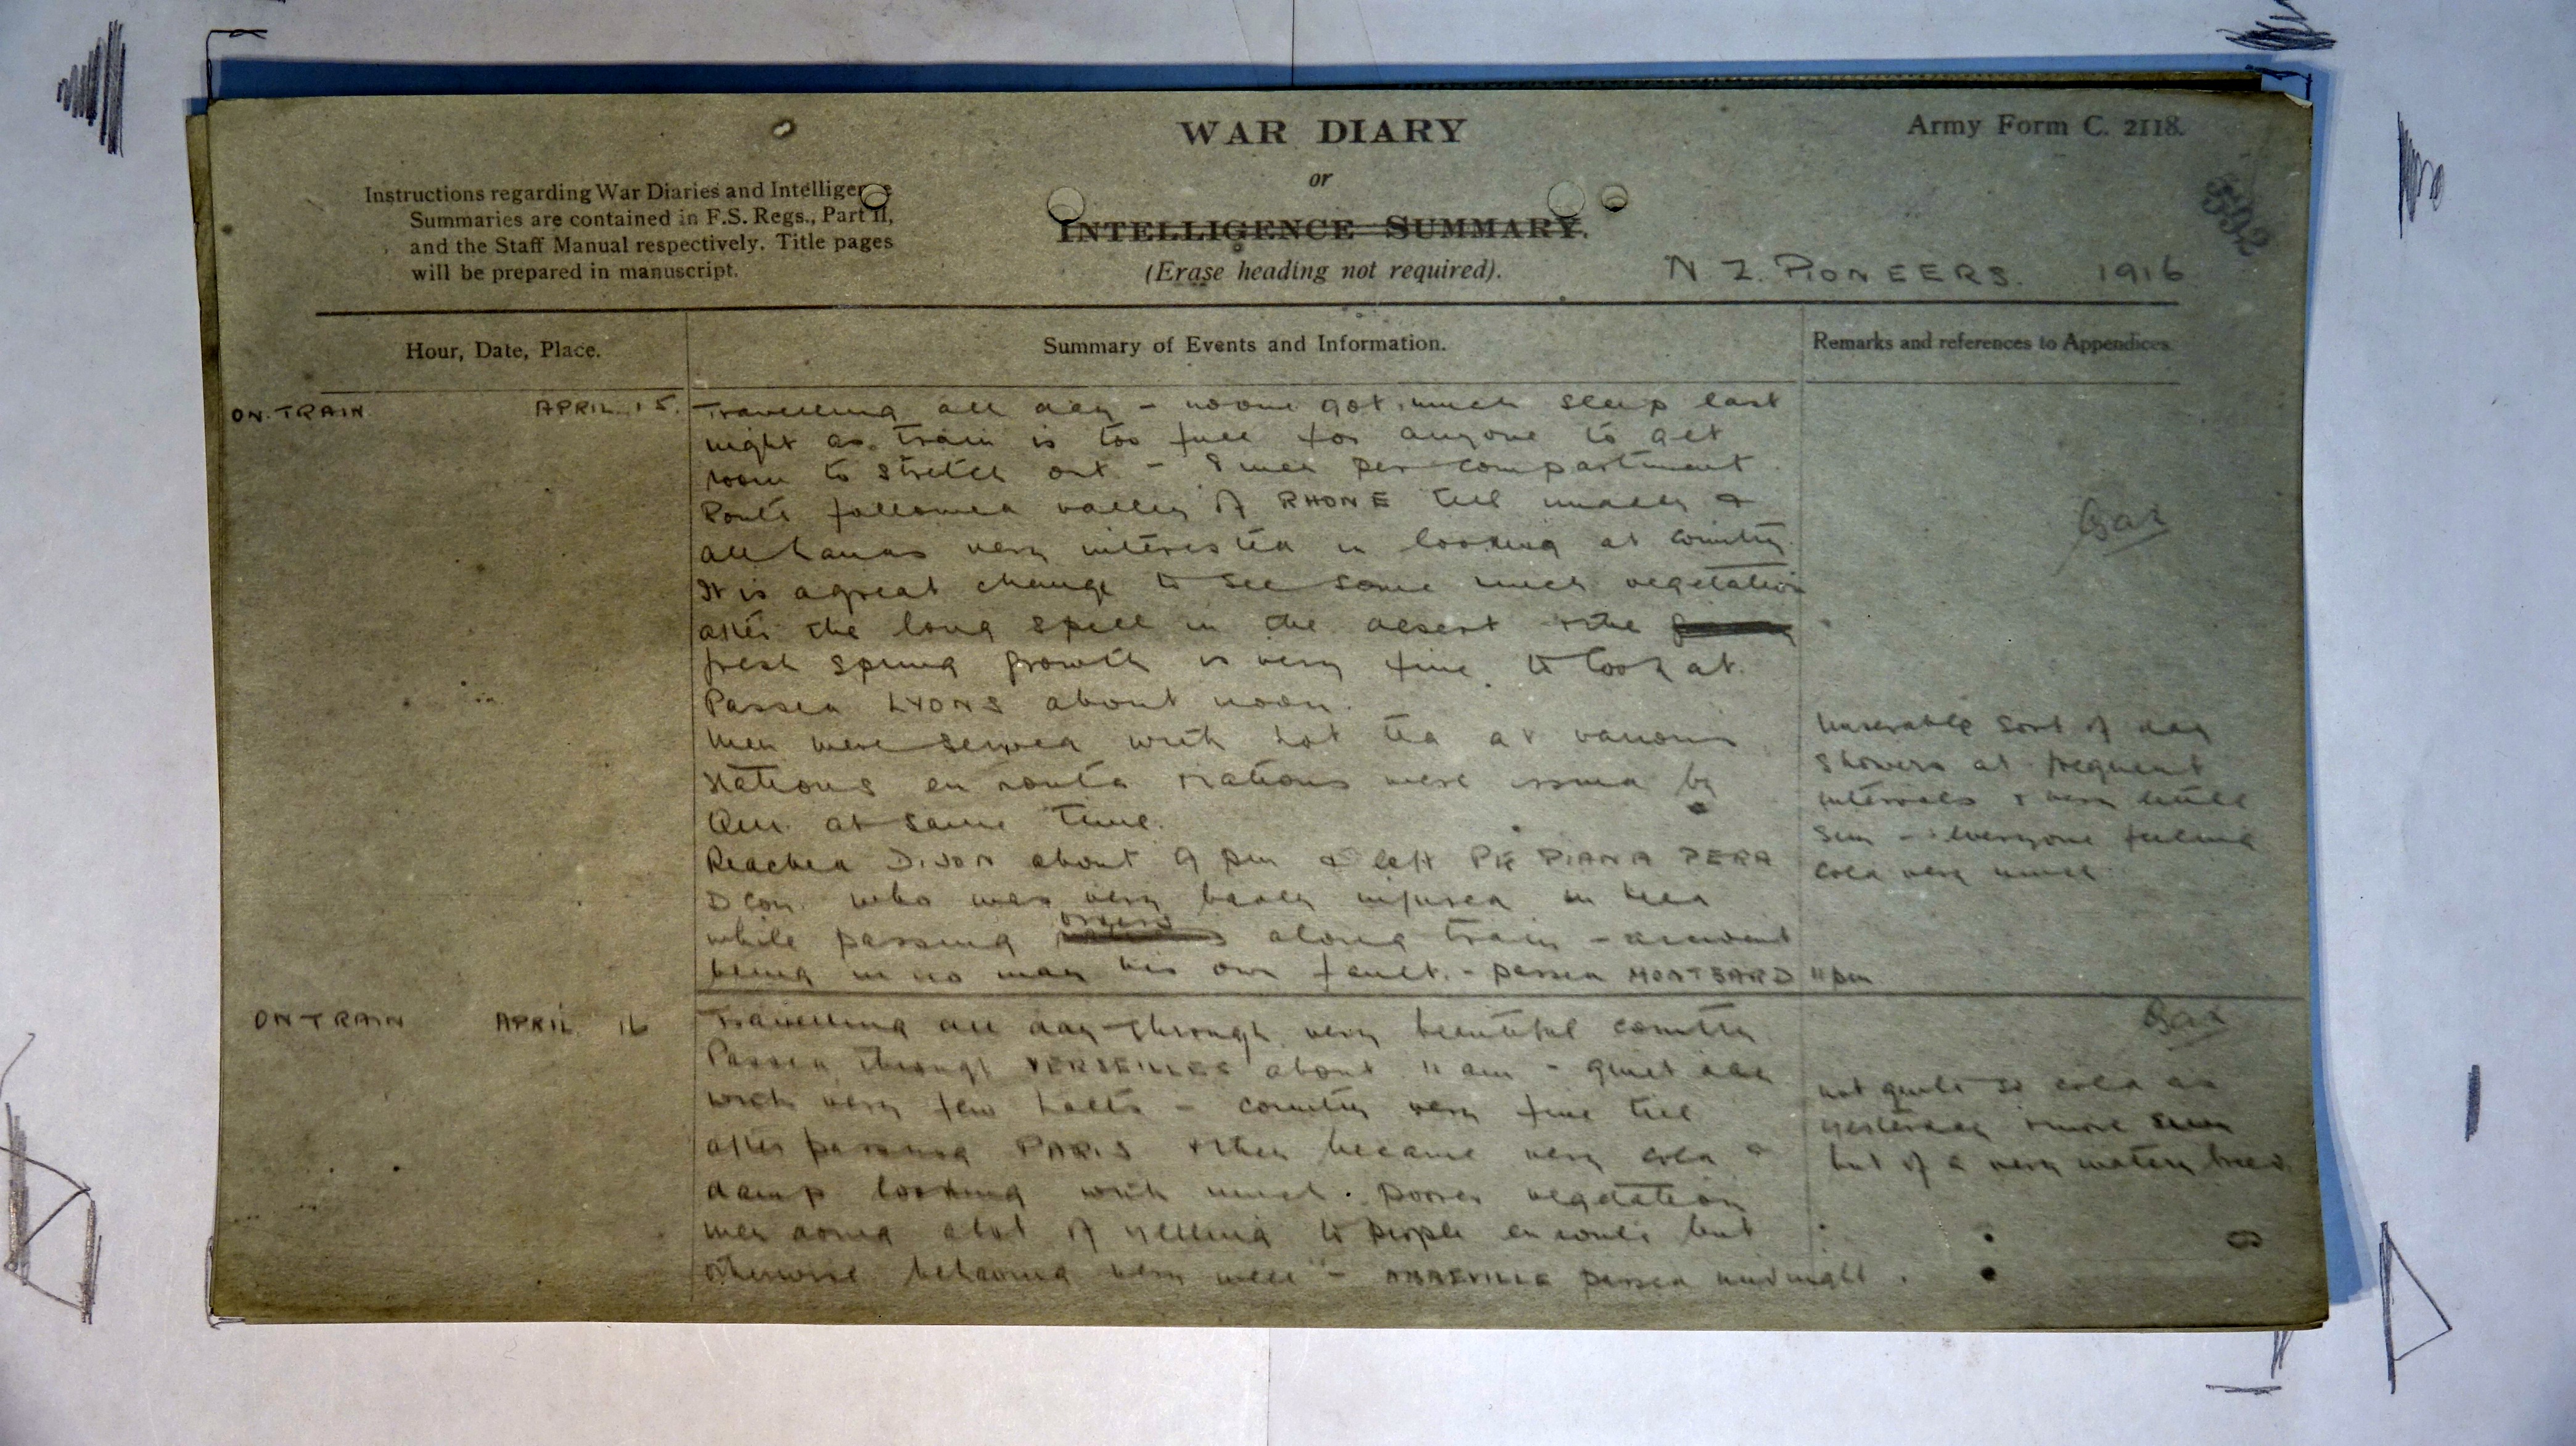 WAR DIARY
or
INTELLIGENCE SUMMARY.
(Erase heading not required).
Army Form C. 2118.
592
Instructions regarding War Diaries and Intelligence
Summaries are contained in F.S. Regs., Part II,
and the Staff Manual respectively. Title pages
will be prepared in manuscript.
N Z. PIONEERS. 1916
Hour, Date, Place.
Summary of Events and Information.
Remarks and references to Appendices.
ON TRAIN APRIL 15.
Travelling all day - no one got much sleep last
night as train is too full for anyone to get
room to stretch out - 8 men per compartment.
Route followed valley of RHONE till midday &
all hands very interested in looking at country.
It is a great change to see some much vegetation
after the long spell in the desert & the
fresh spring growth is very fine to look at.
Passed LYONS about noon.
Men were served with hot tea at various
stations en route rations were issued by
Qm. at same time.
Reached DIJON about 9 pm & left Pte PIANA PERA
D Coy. who was very badly injured in head
while passing orders along train - accident
being in no way his own fault. - passed MONTBARD 11 pm
Miserable sort of day
showers at frequent
intervals & very little
sun - everyone feeling
cold very much
ON TRAIN APRIL 16
Travelling all day through very beautiful country
Passed through VERSEILLES about 11 am - quiet day
with very few halts - country very fine till
after passing PARIS & then became very cold &
damp looking with much poorer vegetation
men doing a lot of yelling to people en route but
otherwise behaving very well - ABBEVILLE passed midnight.
not quite so cold as
yesterday & more sun
but of a very watery breed.